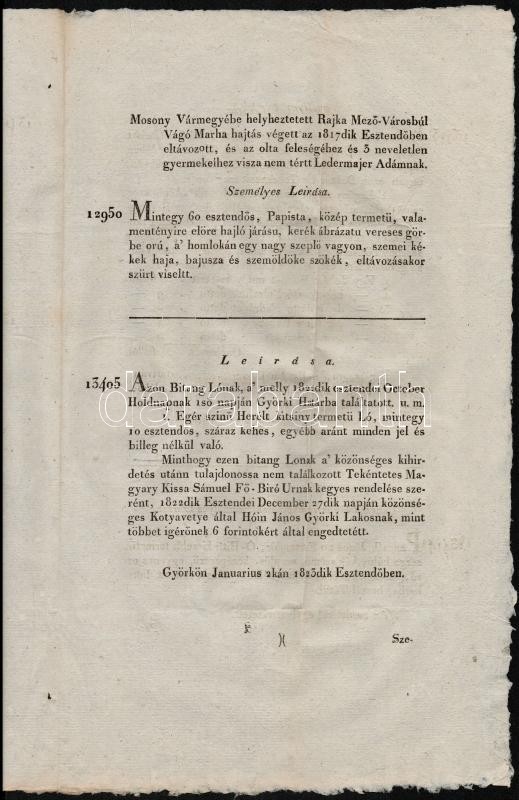 Mosony Vármegyébe helyheztetett Rajka Mező-Városbúl
Vágó Marha hajtás végett az 1817dik Esztendőben
eltávozott, és az olta feleségéhez és 3 neveletlen
gyermekeihez visza nem tértt Ledermajer Adámnak.
Személyes Leirása.
12950 Mintegy 60 esztendős, Papista, közép termetü, vala-
mentényire elöre hajló járásu, kerék ábrázatu vereses gör-
be orú, á' homlokán egy nagy szeplö vagyon, szemei ké-
kek haja, bajusza és szemöldöke szőkék, eltávozásakor
szürt viseltt.
Leirása.
13405 Azon Bitang Lónak, a' melly 1822dik esztendei October
Holdnapnak 1ső napján Györki Határba találtatott. u. m.
1. Egér szinü Herélt kitsiny termetü Ló, mintegy
10 esztendös, száraz kehes, egyébb aránt minden jel és
billeg nélkül való.
Minthogy ezen bitang Lonak a' közönséges kihir-
detés utánn tulajdonossa nem találkozott Tekéntetes Ma-
gyary Kissa Sámuel Fö-Biró Urnak kegyes rendelése sze-
rént, 1822dik Esztendei December 27dik napján közönsé-
ges Kotyavetye által Hóin János Györki Lakosnak, mint
többet igérönek 6 forintokért által engedtetétt.
Györkön Januarius 2kán 1823dik Esztendöben.
)(
Sze-
darabanth